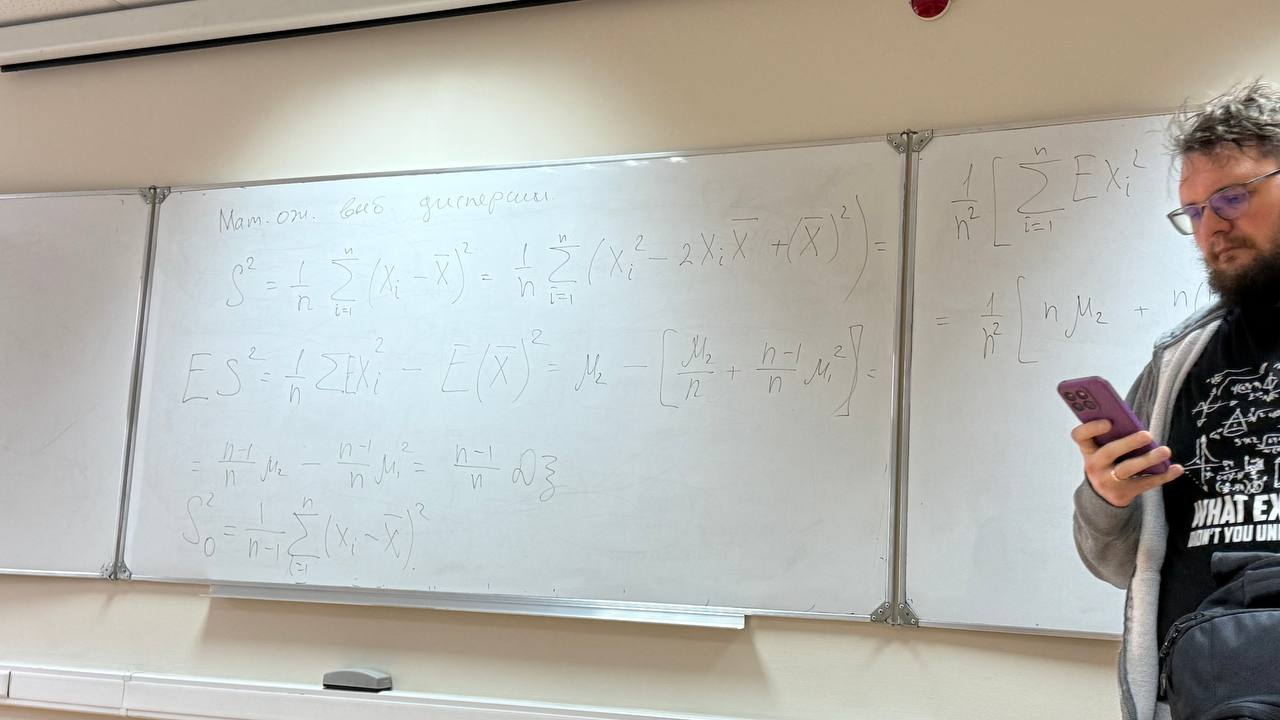 Мат. ож. выб. дисперсии
S² = 1/n ∑_{i=1}^{n} (X_i − X̄)² = 1/n ∑_{i=1}^{n} (X_i² − 2X_i X̄ + (X̄)²) =
E S² = 1/n ∑ E X_i² − E(X̄)² = μ₂ − [μ₂/n + (n-1)/n μ₁²] =
= (n-1)/n μ₂ − (n-1)/n μ₁² = (n-1)/n Dξ
S₀² = 1/(n-1) ∑_{i=1}^{n} (X_i − X̄)².
1/n² [ ∑_{i=1}^{n} E X_i²
= 1/n² [ n μ₂ + n(
WHAT EX
DON'T YOU UN